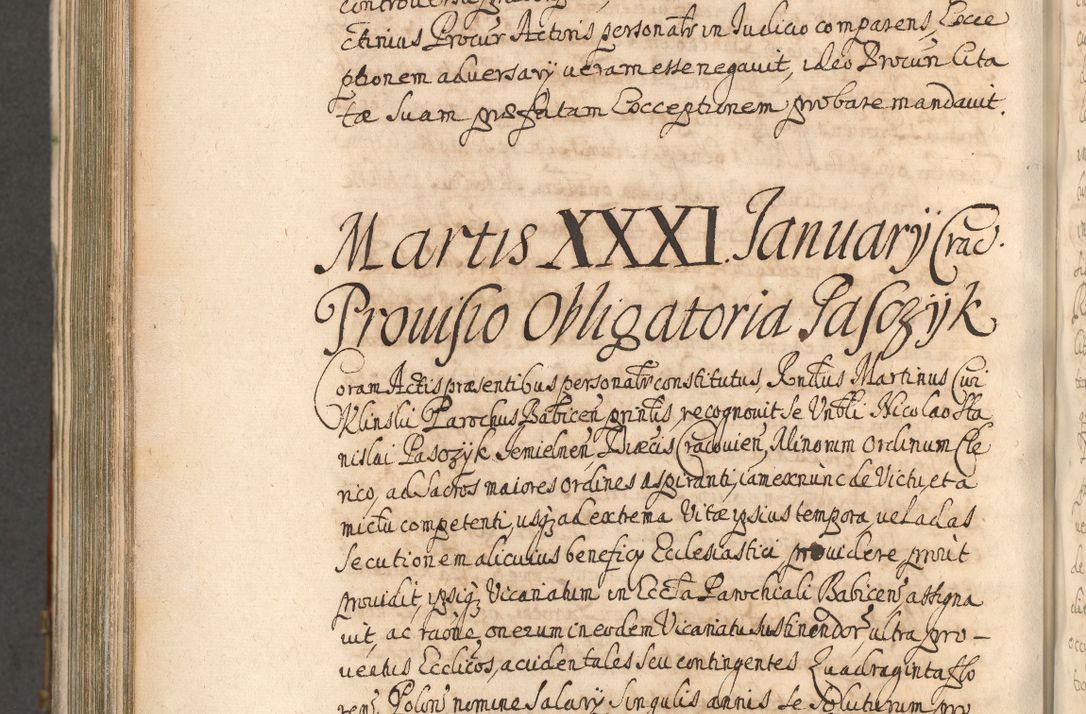 ctinius Procur Actoris personalr in Iudicio comparens, Excce
ptionem adversarÿ veram esse negavit, ideo Procuri Cita
tæ suam præfatam Exceptionem probare mandavit.
Martis XXXI. Ianuarÿ Crac.
Provisio Obligatoria Pasozÿk
Coram Actis præsentibus personalr constitutus, Rndus Martinus Cwi
klinski Parochus Babicen, prinlis, recognovit se Vnbli Nicolao Sta
nislai Pasozÿk Jemielnen, Diæcis Cracovien, Minorum Ordinum Cle
rico, ad Sacros maiores ordines aspiranti, iam ex nunc de Victu, et a
mictu competenti, usq; ad extrema Vitæ ipsius tempora, vel ad as
secutionem alicuius beneficÿ Ecclesiastici providere prout
providit, ipsiq; Vicariatum in Eccla Parochiali Babicen, assigna
vit, ac raõne onerum in eodem Vicariatu sustinendor, ultra pro–
ventus Ecclicos, accidentales seu contingentes Quadraginta flo
ren, Polon, nomine Salarÿ singulis annis se soluturum pro